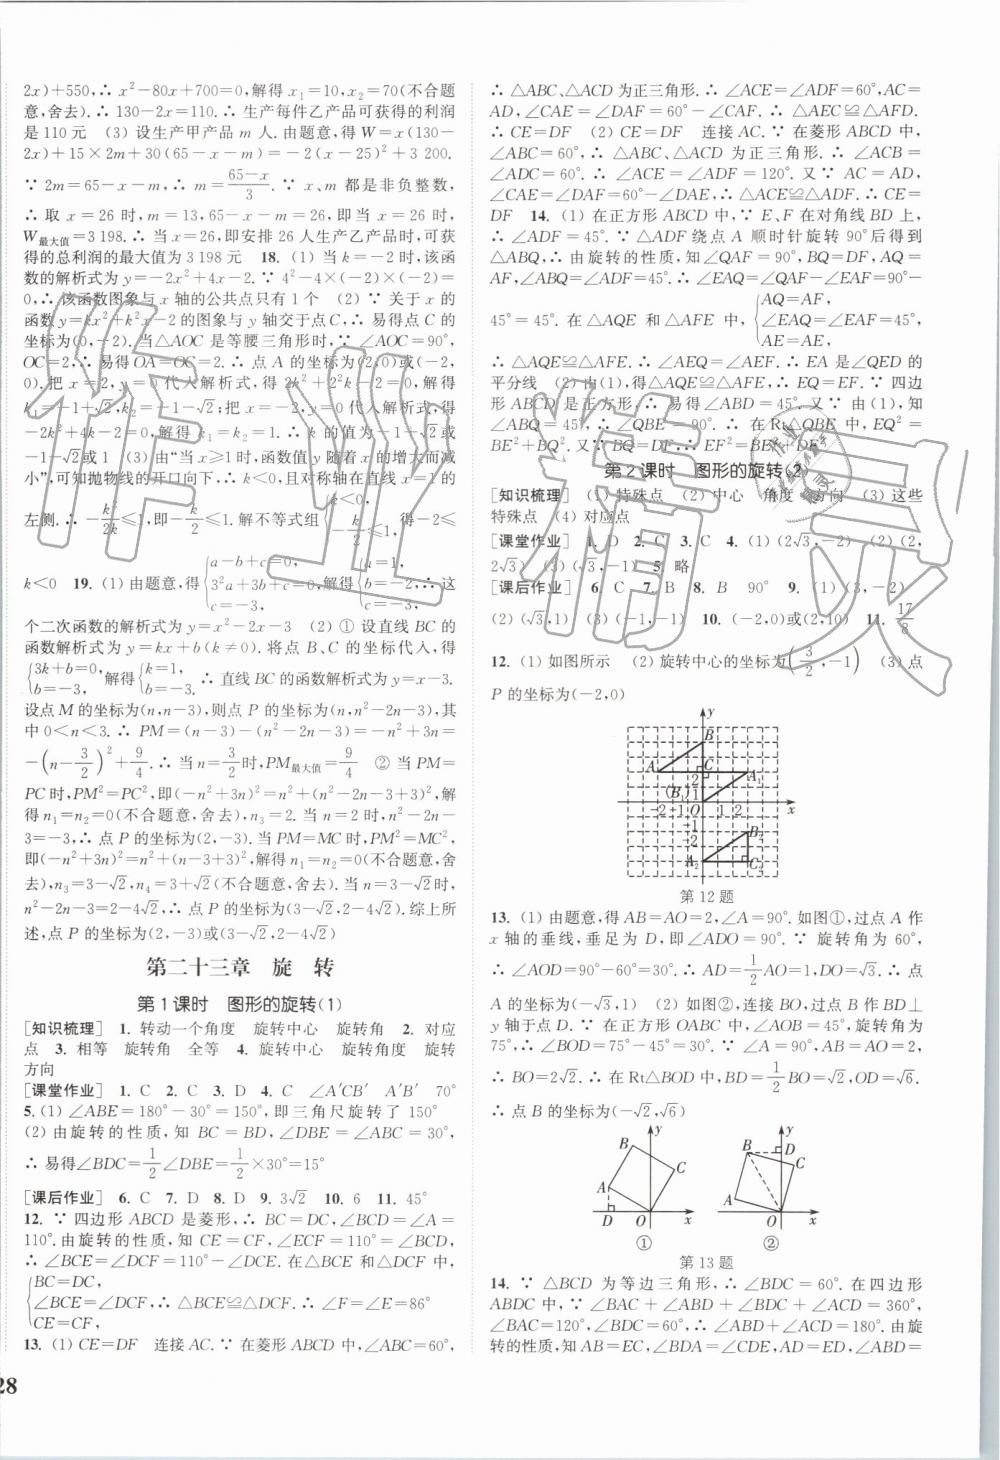 2x)+550,∴ x²-80x+700=0,解得 x₁=10,x₂=70(不合题
意,舍去).∴ 130-2x=110.∴ 生产每件乙产品可获得的利润
是 110 元　(3) 设生产甲产品 m 人.由题意,得 W=x(130-
2x)+15×2m+30(65-x-m)=-2(x-25)²+3 200.
∵ 2m=65-x-m,∴ m=(65-x)/3.∵ x、m 都是非负整数,
∴ 取 x=26 时,m=13,65-x-m=26,即当 x=26 时,
W最大值=3 198.∴ 当 x=26,即安排 26 人生产乙产品时,可获
得的总利润的最大值为 3 198 元　18. (1) 当 k=-2 时,该函
数的解析式为 y=-2x²+4x-2.∵ 4²-4×(-2)×(-2)=
0,∴ 该函数图象与 x 轴的公共点只有 1 个　(2) ∵ 关于 x 的
函数 y=kx²+k²x-2 的图象与 y 轴交于点 C,∴ 易得点 C 的
坐标为(0,-2).当△AOC 是等腰三角形时,∵ ∠AOC=90°,
OC=2,∴ 易得 OA=OC=2.∴ 点 A 的坐标为(2,0)或(-2,
0).把 x=2,y=0 代入解析式,得 2k²+2²k-2=0,解得
k₁=-1+√2,k₂=-1-√2;把 x=-2,y=0代入解析式,得
-2k²+4k-2=0,解得 k₁=k₂=1.∴ k 的值为-1+√2或
-1-√2或 1　(3) 由“当 x≥1 时,函数值 y 随着 x 的增大而减
小”,可知抛物线的开口向下,∴ k<0,且对称轴在直线 x=1 的
左侧.∴ -k²/2k≤1,即-k/2≤1.解不等式组{k<0, -k/2≤1, 得-2≤
k<0　19. (1) 由题意,得{a-b+c=0, 3²a+3b+c=0, c=-3, 解得{a=1, b=-2, c=-3, ∴ 这
个二次函数的解析式为 y=x²-2x-3　(2) ① 设直线 BC 的
函数解析式为 y=kx+b(k≠0).将点 B、C 的坐标代入,得
{3k+b=0, b=-3, 解得{k=1, b=-3, ∴ 直线 BC 的函数解析式为 y=x-3.
设点 M 的坐标为(n,n-3),则点 P 的坐标为(n,n²-2n-3),其
中 0<n<3.∴ PM=(n-3)-(n²-2n-3)=-n²+3n=
-(n-3/2)²+9/4.∴ 当 n=3/2时,PM最大值=9/4　② 当 PM=
PC时,PM²=PC²,即(-n²+3n)²=n²+(n²-2n-3+3)²,解
得 n₁=n₂=0(不合题意,舍去),n₃=2.当 n=2 时,n²-2n-
3=-3,∴ 点 P 的坐标为(2,-3).当 PM=MC 时,PM²=MC²,
即(-n²+3n)²=n²+(n-3+3)²,解得 n₁=n₂=0(不合题意,舍
去),n₃=3-√2,n₄=3+√2(不合题意,舍去).当 n=3-√2时,
n²-2n-3=2-4√2,∴ 点 P 的坐标为(3-√2,2-4√2).综上所
述,点 P 的坐标为(2,-3)或(3-√2,2-4√2)
第二十三章　旋　转
第 1 课时　图形的旋转(1)
[知识梳理]　1. 转动一个角度　旋转中心　旋转角　2. 对应
点　3. 相等　旋转角　全等　4. 旋转中心　旋转角度　旋转
方向
[课堂作业]　1. C　2. C　3. D　4. C　∠A′CB′　A′B′　70°
5. (1) ∠ABE=180°-30°=150°,即三角尺旋转了 150°
(2) 由旋转的性质,知 BC=BD,∠DBE=∠ABC=30°,
∴ 易得∠BDC=1/2∠DBE=1/2×30°=15°
[课后作业]　6. C　7. D　8. D　9. 3√2　10. 6　11. 45°
12. ∵ 四边形 ABCD 是菱形,∴ BC=DC,∠BCD=∠A=
110°.由旋转的性质,知 CE=CF,∠ECF=110°=∠BCD,
∴ ∠BCE=∠DCF=110°-∠DCE.在△BCE 和△DCF 中,
{BC=DC,
∠BCE=∠DCF,∴ △BCE≌△DCF.∴ ∠F=∠E=86°
CE=CF,
13. (1) CE=DF　连接 AC.∵ 在菱形 ABCD 中,∠ABC=60°,
28
∴ △ABC、△ACD 为正三角形.∴ ∠ACE=∠ADF=60°,AC=
AD,∠CAE=∠DAF=60°-∠CAF.∴ △AEC≌△AFD.
∴ CE=DF　(2) CE=DF　连接 AC.∵ 在菱形 ABCD 中,
∠ABC=60°,∴ △ABC、△ACD 为正三角形.∴ ∠ACB=
∠ADC=60°.∴ ∠ACE=∠ADF=120°.又∵ AC=AD,
∠CAE=∠DAF=60°-∠DAE,∴ △ACE≌△ADF.∴ CE=
DF　14. (1) 在正方形 ABCD 中,∵ E、F 在对角线 BD 上,
∴ ∠ADF=45°.∵ △ADF 绕点 A 顺时针旋转 90°后得到
△ABQ,∴ 由旋转的性质,知∠QAF=90°,BQ=DF,AQ=
AF,∠ABQ=∠ADF=45°.∴ ∠EAQ=∠QAF-∠EAF=90°-
45°=45°.在△AQE 和△AFE 中,{AQ=AF, ∠EAQ=∠EAF=45°, AE=AE,
∴ △AQE≌△AFE.∴ ∠AEQ=∠AEF.∴ EA 是∠QED 的
平分线　(2) 由(1),得△AQE≌△AFE,∴ EQ=EF.∵ 四边
形 ABCD 是正方形,∴ 易得∠ABD=45°.又∵ 由(1),知
∠ABQ=45°,∴ ∠QBE=90°.∴ 在 Rt△QBE 中,EQ²=
BE²+BQ².又∵ BQ=DF,∴ EF²=BE²+DF²
第 2 课时　图形的旋转(2)
[知识梳理]　(1) 特殊点　(2) 中心　角度　方向　(3) 这些
特殊点　(4) 对应点
[课堂作业]　1. D　2. C　3. C　4. (1) (2√3,-2)　(2) (2,
2√3)　(3) (√3,-1)　5. 略
[课后作业]　6. C　7. B　8. B　90°　9. (1) (3,-2)
(2) (√3,1)　(3) (-1,-1)　10. (-2,0)或(2,10)　11. 17/8
12. (1) 如图所示　(2) 旋转中心的坐标为(3/2,-1)　(3) 点
P 的坐标为(-2,0)
y
B
A C A₁
2
1
(B₁)
-2 -1 O 1 2 x
-1
-2 B₂
A₂ C₂
第 12 题
13. (1) 由题意,得 AB=AO=2,∠A=90°.如图①,过点 A 作
x 轴的垂线,垂足为 D,即∠ADO=90°.∵ 旋转角为 60°,
∴ ∠AOD=90°-60°=30°.∴ AD=1/2AO=1,DO=√3.∴ 点
A 的坐标为(-√3,1)　(2) 如图②,连接 BO,过点 B 作 BD⊥
y 轴于点 D.∵ 在正方形 OABC 中,∠AOB=45°,旋转角为
75°,∴ ∠BOD=75°-45°=30°.∵ ∠A=90°,AB=AO=2,
∴ BO=2√2.∴ 在 Rt△BOD 中,BD=1/2BO=√2,OD=√6.
∴ 点 B 的坐标为(-√2,√6)
y B C A D O x
①
y B D C A O x
②
第 13 题
14. ∵ △BCD 为等边三角形,∴ ∠BDC=60°.在四边形
ABDC 中,∵ ∠BAC+∠ABD+∠BDC+∠ACD=360°,
∠BAC=120°,∠BDC=60°,∴ ∠ABD+∠ACD=180°.由旋
转的性质,知 AB=EC,∠BDA=∠CDE,AD=ED,∠ABD=
作业精灵